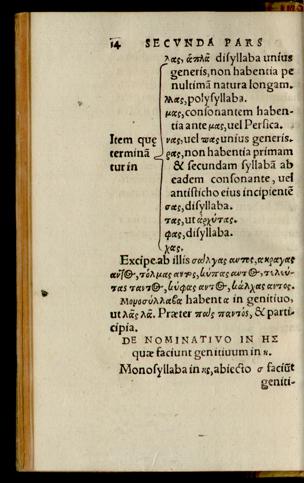 14 SECVNDA PARS
λας, ἁπλᾶ disyllaba unius
generis, non habentia pe
nultimā natura longam.
λλας, polysyllaba.
μας, consonantem haben-
tia ante μας, uel Persica.
Item quę νας, uel πας unius generis.
terminā ρας, non habentia primam
tur in & secundam syllabā ab
eadem consonante, uel
antisticho eius incipientē
σας, disyllaba.
τας, ut ἀρχύτας.
φας, disyllaba.
χας.
Excipe ab illis ἀκραγας
αντος, τόλμας αντος, αντος,
αντος, αντος, κάλχας αντος.
Μονοσύλλαβα habent α in genitiuo,
ut λᾶς λᾶ. Præter πᾶς παντός, & parti-
cipia.
DE NOMINATIVO IN ΗΣ
quæ faciunt genitiuum in η.
Monosyllaba in ης, abiecto σ faciūt
geniti-